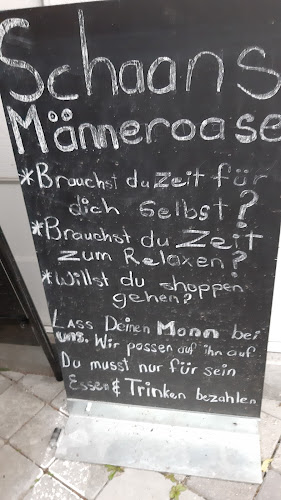 Schaans
Männeroase
*Brauchst du Zeit für
dich Selbst?
*Brauchst du Zeit
zum Relaxen?
*Willst du shoppen
gehen?
Lass Deinen Mann bei
uns. Wir passen auf ihn auf
Du musst nur für sein
Essen & Trinken bezahlen